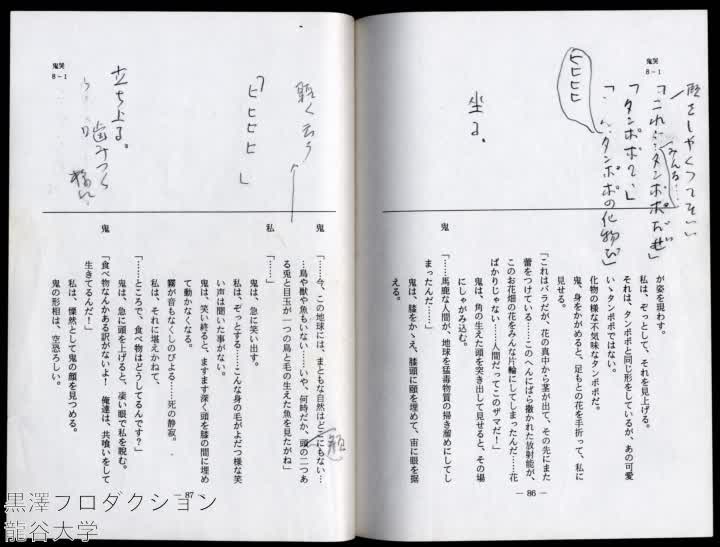 鬼哭
8-1
「タンポポでい」
ヒヒヒヒ
坐る。
が姿を現わす。
私は、ぞっとして、それを見上げる。
それは、タンポポと同じ形をしているが、あの可愛
いゝタンポポではない。
化物の様な不気味なタンポポだ。
鬼、身をかがめると、足もとの花を手折って、私に
見せる。
鬼
「これはバラだが、花の真中から茎が出て、その先にまた
蕾をつけている……このへんにばら撒かれた放射能が、
このお花畑の花をみんな片輪にしてしまったんだ……花
ばかりじゃない……人間だってこのザマだ！」
鬼は、角の生えた頭を突き出して見せると、その場
にしゃがみ込む。
「……馬鹿な人間が、地球を猛毒物質の掃き溜めにしてし
まったんだ……」
鬼は、膝をかゝえ、膝頭に頤を埋めて、宙に眼を据
える。
— 86 —
鬼哭
8-1
軽く云う
「ヒヒヒヒ」
立ち上る。
噛みつく
鬼
「……今、この地球には、まともな自然はどこにもない…
…鳥や獣や魚もいない……いや、何時だか、頭の二つあ
る兎と目玉が一つの鳥と毛の生えた魚を見たがね」
私
「……」
鬼は、急に笑い出す。
私は、ぞっとする……こんな身の毛がよだつ様な笑
い声は聞いた事がない。
鬼は、笑い終ると、ますます深く頭を膝の間に埋め
て動かなくなる。
霧が音もなくしのびよる……死の静寂。
私は、それに堪えかねて、
「……ところで、食べ物はどうしてるんです？」
鬼は、急に頭を上げると、凄い眼で私を睨む。
「食べ物なんかある訳がないよ！　俺達は、共喰いをして
生きてるんだ！」
私は、慄然として鬼の顔を見つめる。
鬼の形相は、空恐ろしい。
— 87 —
黒澤プロダクション
龍谷大学